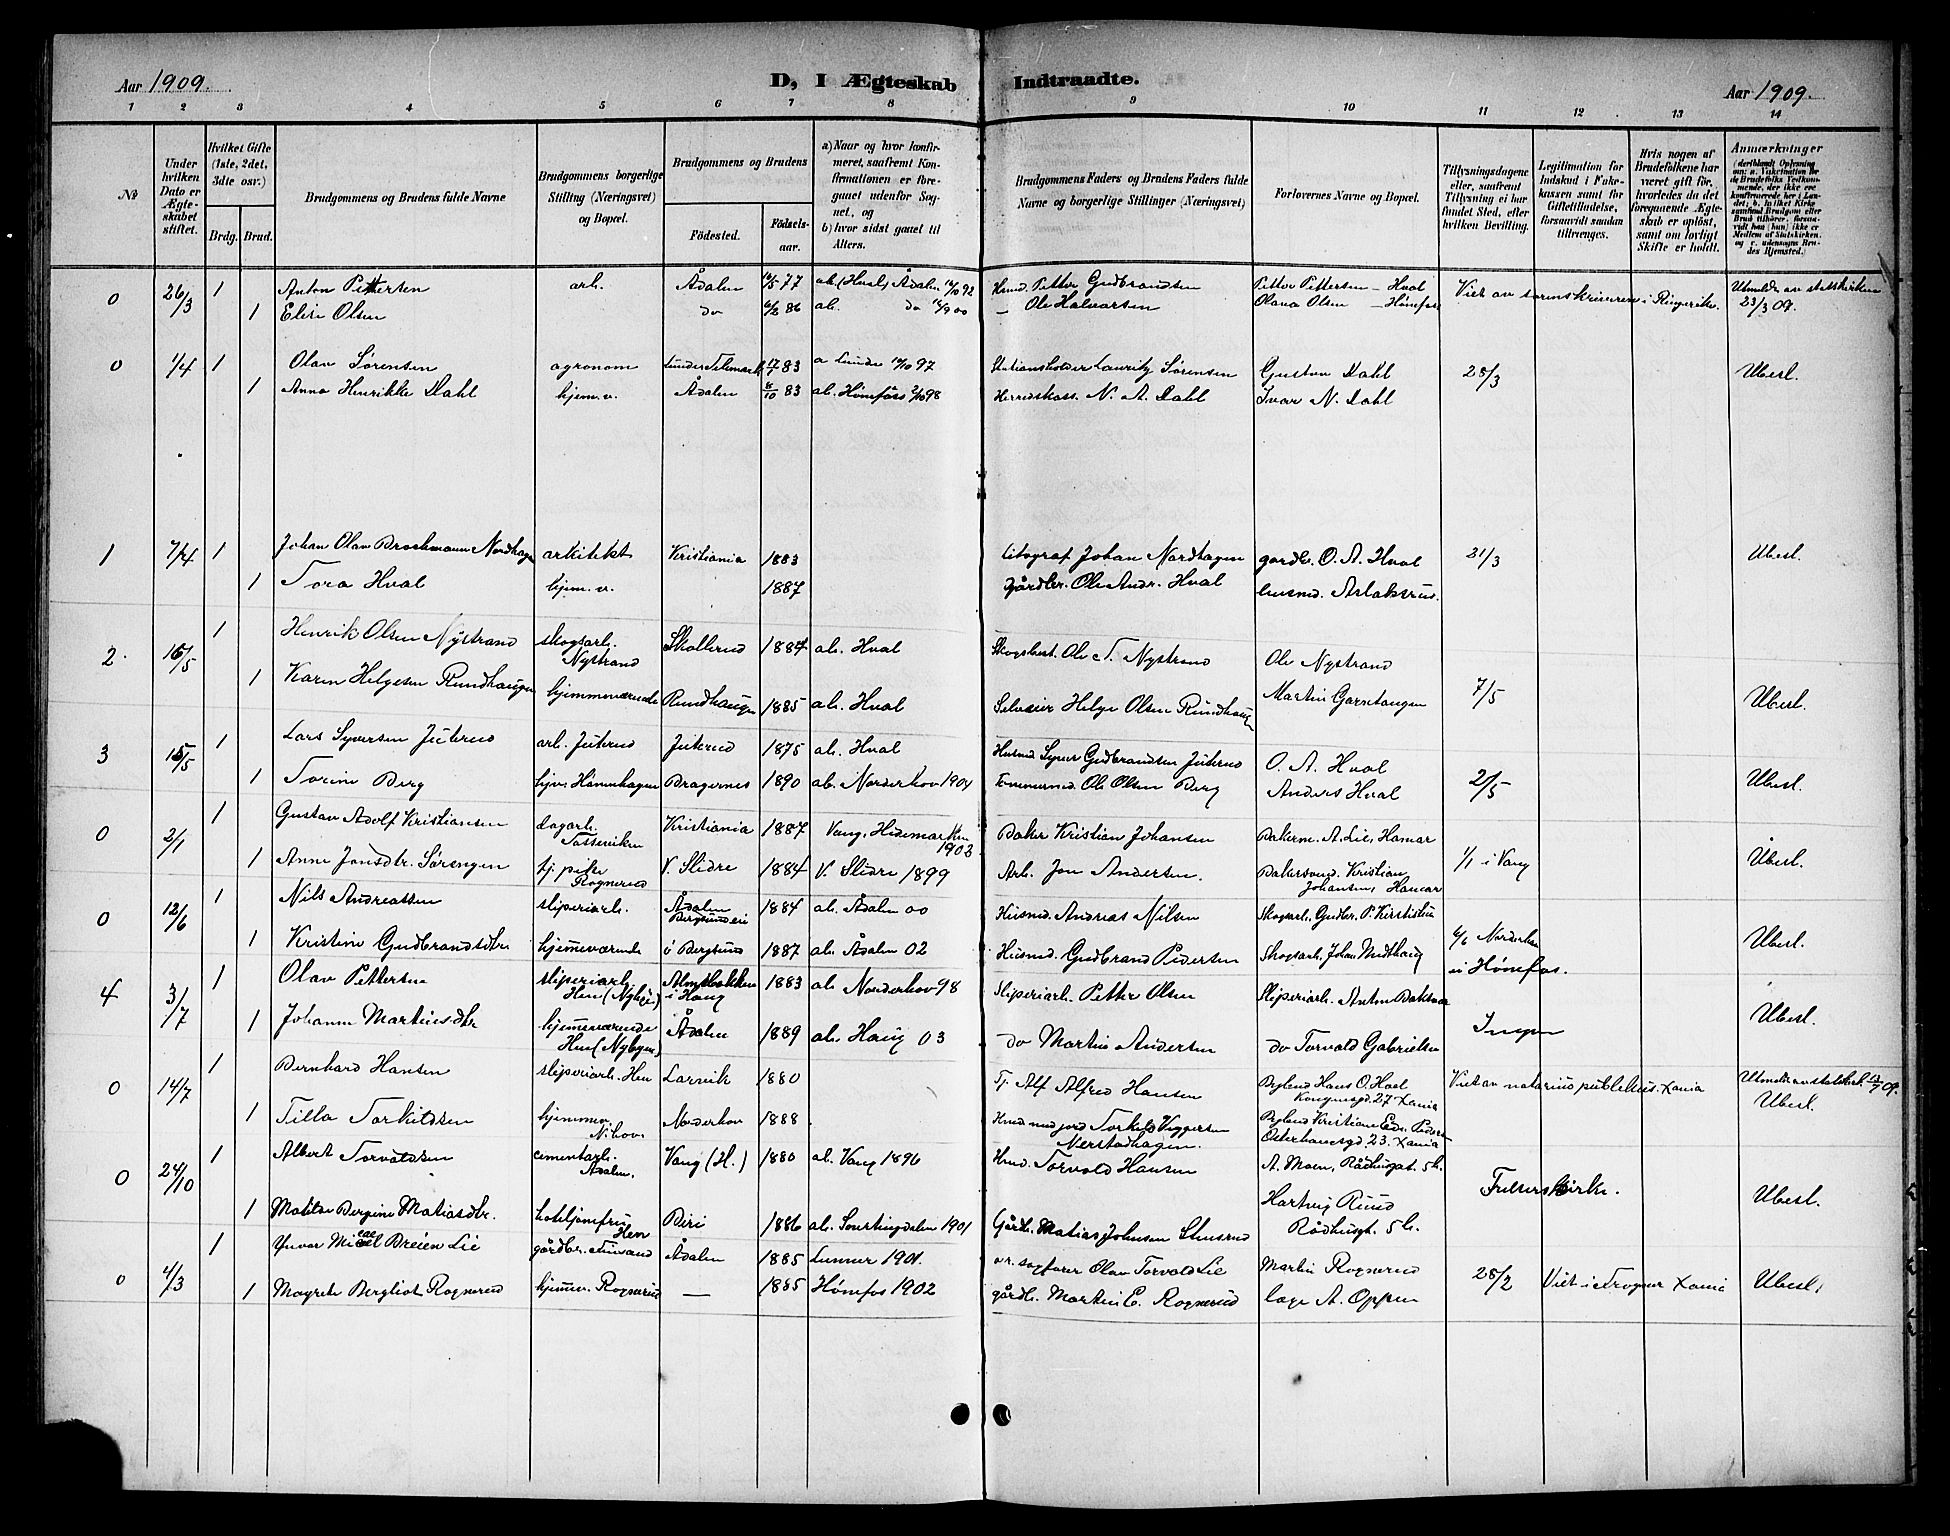 Aar 1909. D, I Ægteskab Indtraadte. Aar 1909.
1 2 3 4 5 6 7 8 9 10 11 12 13 14
№
Under hvilken Dato er Ægteskabet stiftet.
Hvilket Gifte (1ste, 2det, 3dte osv.)
Brdg. Brud.
Brudgommens og Brudens fulde Navne
Brudgommens borgerlige Stilling (Næringsvei) og Bopæl.
Brudgommens og Brudens
Födested. Födselsaar.
a) Naar og hvor konfirmeret, saafremt Konfirmationen er foregaaet udenfor Sognet, og
b) hvor sidst gaaet til Alters.
Brudgommens Faders og Brudens Faders fulde Navne og borgerlige Stillinger (Næringsvei)
Forlovernes Navne og Bopæl.
Tillysningsdagene eller, saafremt Tillysning ei har fundet Sted, efter hvilken Bevilling.
Legitimation for Indskud i Enkekassen samt for Giftetilladelse, forsaavidt saadan tiltrænges.
Hvis nogen af Brudefolkene har været gift för, hvorledes da det foregaaende Ægteskab er oplöst, samt om lovligt Skifte er holdt.
Anmærkninger
0 26/3 1 Anton Pettersen arb. Ådalen 77 ab. Ådalen 92 Husmd. Petter Gudbrandsen Petter Pettersen - Hval Viet av sorenskriveren i Ringerike. Utmeldt av statskirken
1 Elise Olsen do 6/2 86 ab. do 00 - Ole Halvorsen Olava Olsen - Hönefos 23/3 09.
0 1/4 1 Olav Sørensen agronom Lunde Telemark 83 a Lunde 97 Stationsholder Lauritz Sørensen Gustav Dahl 28/3 Ubesl.
1 Anna Henrikke Dahl hjem.v. Ådalen 8/10 83 ab. Hönefos 98 Herredskass. N. A. Dahl Ivar N. Dahl
1 7/4 1 Johan Olav Brochmann Nordhagen arkitekt Kristiania 1883 litograf Johan Nordhagen gårdbr. O. A. Hval 31/3 Ubesl.
1 Tora Hval hjem.v. 1887 gårdbr. Ole Andr. Hval husmd. Aslaksrus.
2 15/5 1 Henrik Olsen Nystrand skogsarb. Nystrand Skollerud 1884 ab. Hval Skogsbest. Ole T. Nystrand Ole Nystrand
1 Karen Helgesen Rundhaugen hjemmeværende Rundhaugen 1885 ab. Hval Selveier Helge Olsen Rundhaugen Martin Garntangen 7/5 Ubesl.
3 15/5 1 Lars Syversen Juterud arb. Juterud Juterud 1875 ab. Hval Husmd. Syver Gudbrandsen Juterud O. A. Hval
1 Torine Berg hjv. Hönenhagen Bragernes 1890 ab. Norderhov 1904 Tømmermd. Ole Olsen Berg Anders Hval 2/5 Ubesl.
0 2/1 1 Gustav Adolf Kristiansen dagarb. Tosseviken Kristiania 1887 Vang, Hedemarken 1902 Baker Kristian Johansen Bakerme. A. Lie, Hamar
1 Anne Jonsdtr. Sørengen tj. pike Rognerud V. Slidre 1884 V. Slidre 1899 Arb. Jon Andersen. Bakersvend. Kristian Johansen, Hamar 1/1 i Vang Ubesl.
0 12/6 1 Nils Andreassen sliperiarb. Ådalen Bergsundeie 1884 ab. Ådalen 00 Husmd. Andreas Nilsen Skogsarb. Gudbr. P. Kirstistuen
1 Kristine Gudbrandsdtr. hjemmeværende i Bergsund 1887 ab. Ådalen 02 Husmd. Gudbrand Pedersen Skogsarb. Johan Midthaug 6/6 Norderhov i Hönefos. Ubesl.
4 3/7 1 Olav Pettersen sliperiarb. Hen (Nybyen) Almebakken i Haug 1883 ab Norderhov 98 Sliperiarb. Petter Olsen Sliperiarb. Anton Baksvær
1 Johanne Martinsdtr. hjemmeværende Hen (Nybyen) Ådalen 1889 ab. Haug 03 do Martin Andersen do Torvald Gabrielsen Ingen Ubesl.
0 14/7 1 Bernhard Hansen sliperiarb. Hen Larvik 1880 Tj. Alf Alfred Hansen Hans O. Hval Kongensgd. 27 Xania Viet av notarius publicus. Xania Utmeldt av statskirk. 09.
1 Tilla Torkildsen hjemmev. Norderhov 1888 Hmd med jord Torkild Viggersen Nerstadhagen. Kristian Edv. Peders Osterhausgd. 23. Xania Ubesl.
0 24/10 1 Albert Torvaldsen cementarb. Ådalen. Vang (H.) 1880 ab. Vang 1896 Hmd. Torvald Hansen A. Moen, Rådhusgt. 5b.
1 Matilde Bergine Matiasdtr. hoteljomfru Hen Biri 1886 ab. Snertingdalen 1901 Gårdb. Matias Johnsen Stensrud Hartvig Ruud Rådhusgt. 5b. Frelserskirke. Ubesl.
0 4/3 1 Ynvar Micael Breien Lie gårdbr. Ådalen 1885 Lunner 1901. o.r.sagfører Olav Torvald Lie Martin Rognerud
1 Magrete Bergliot Rognerud hjemmev. Rognerud - 1885 Hönefos 1902 gårdb. Martin E. Rognerud Lage A. Oppen 28/2 Viet i Frogner Xania Ubesl.